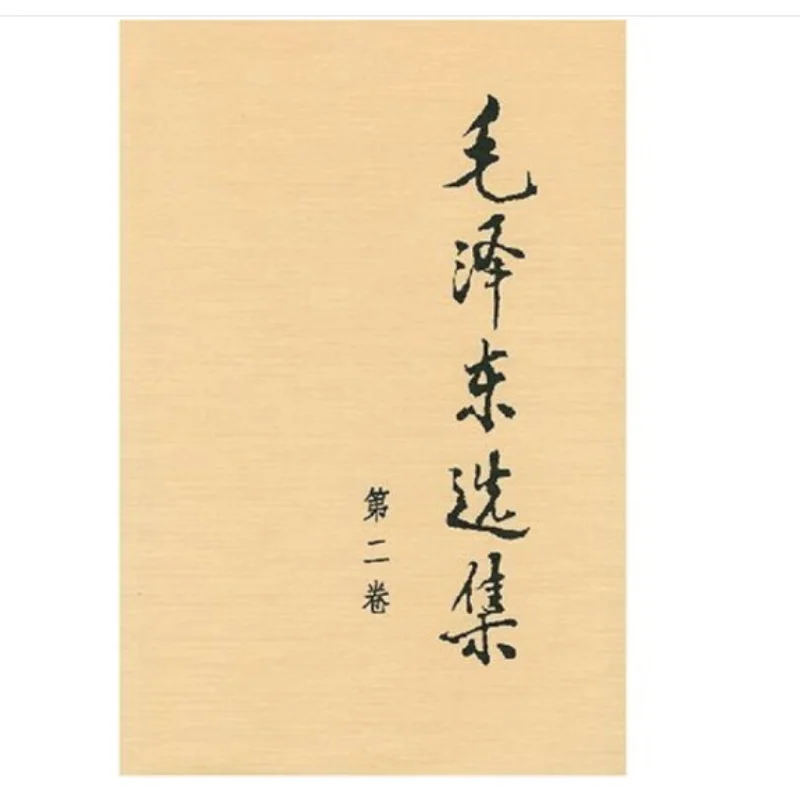 毛泽东选集
第二卷